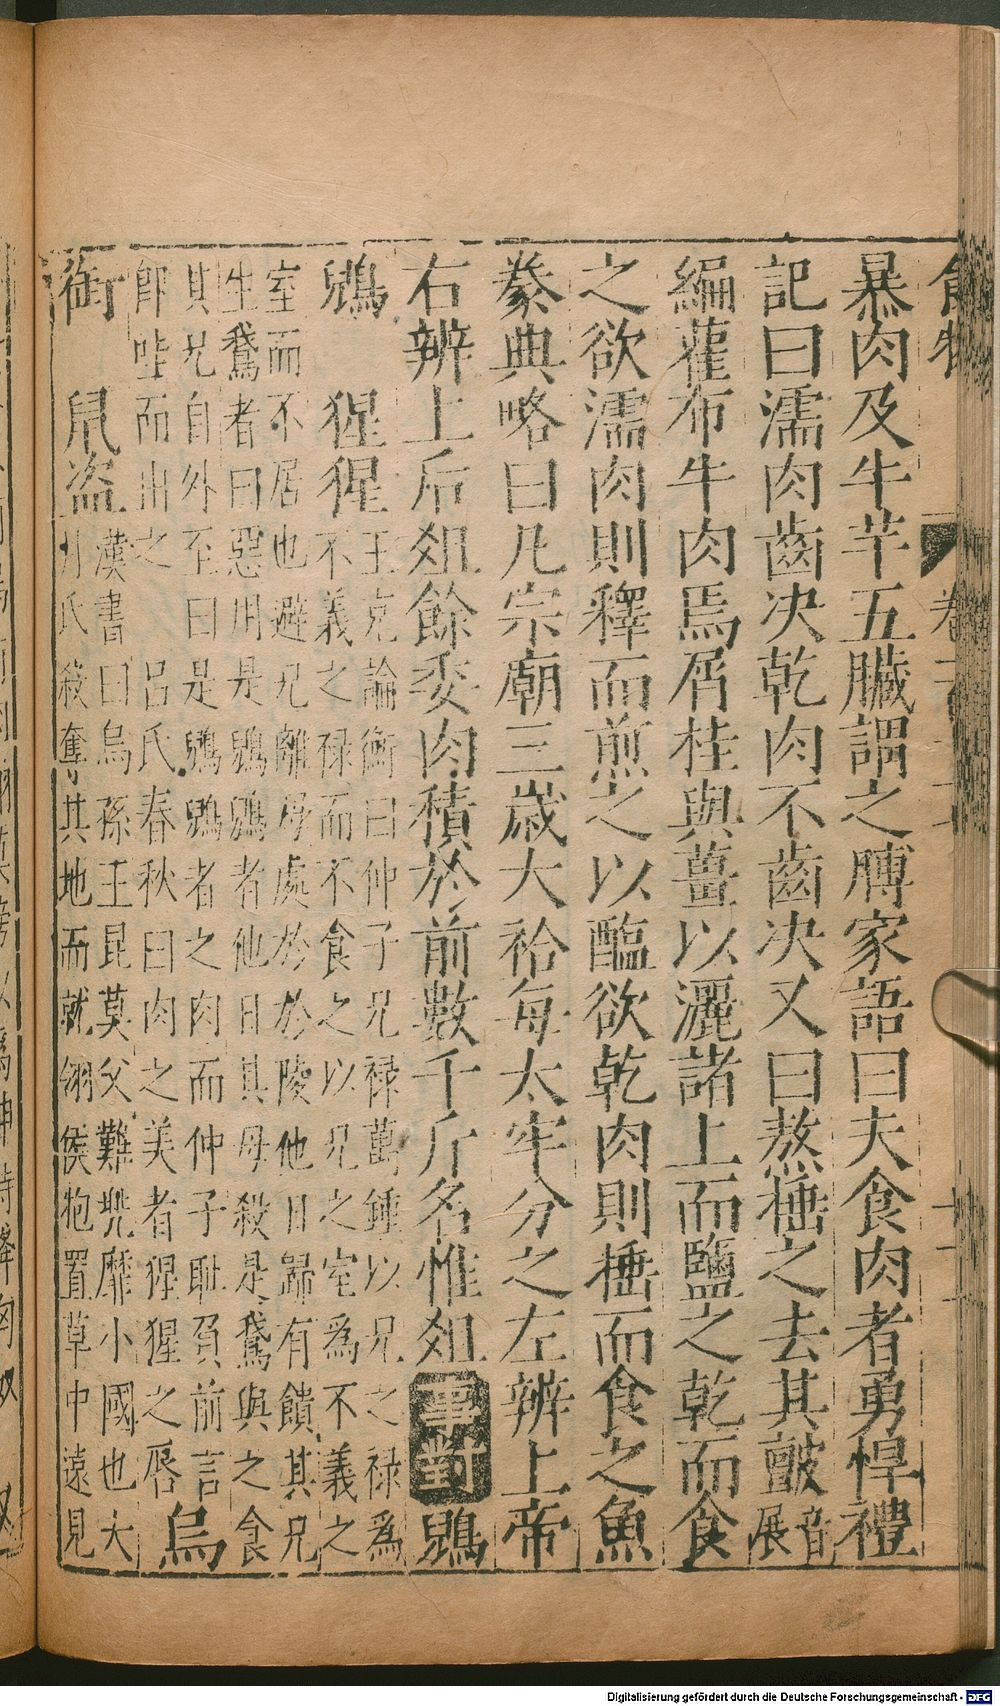 暴肉及牛芊五臟謂之膊家語曰夫食肉者勇悍禮
記曰濡肉齒决乾肉不齒决又曰熬捶之去其皽音展
編萑布牛肉焉屑桂與薑以灑諸上而鹽之乾而食
之欲濡肉則釋而煎之以醢欲乾肉則捶而食之魚
豢典略曰凡宗廟三歲大祫每太牢分之左辨上帝
右辨上后俎餘委肉積於前數千斤名惟俎 事對 鶂
鶂 猩猩 王充論衡曰仲子兄祿萬鍾以兄之祿爲
不義之祿而不食之以兄之室爲不義之
室而不居也避兄離母處於於陵他日歸有饋其兄
生鵞者曰惡用是鶂鶂者他日其母殺是鵞與之食
其兄自外至曰是鶂鶂者之肉而仲子耻負前言
卽哇而出之 呂氏春秋曰肉之美者猩猩之唇 烏
銜 鼠盜 漢書曰烏孫王昆莫父難兠靡小國也大
月氏殺奪其地而就翎侯抱置草中遠見
Digitalisierung gefördert durch die Deutsche Forschungsgemeinschaft - DFG